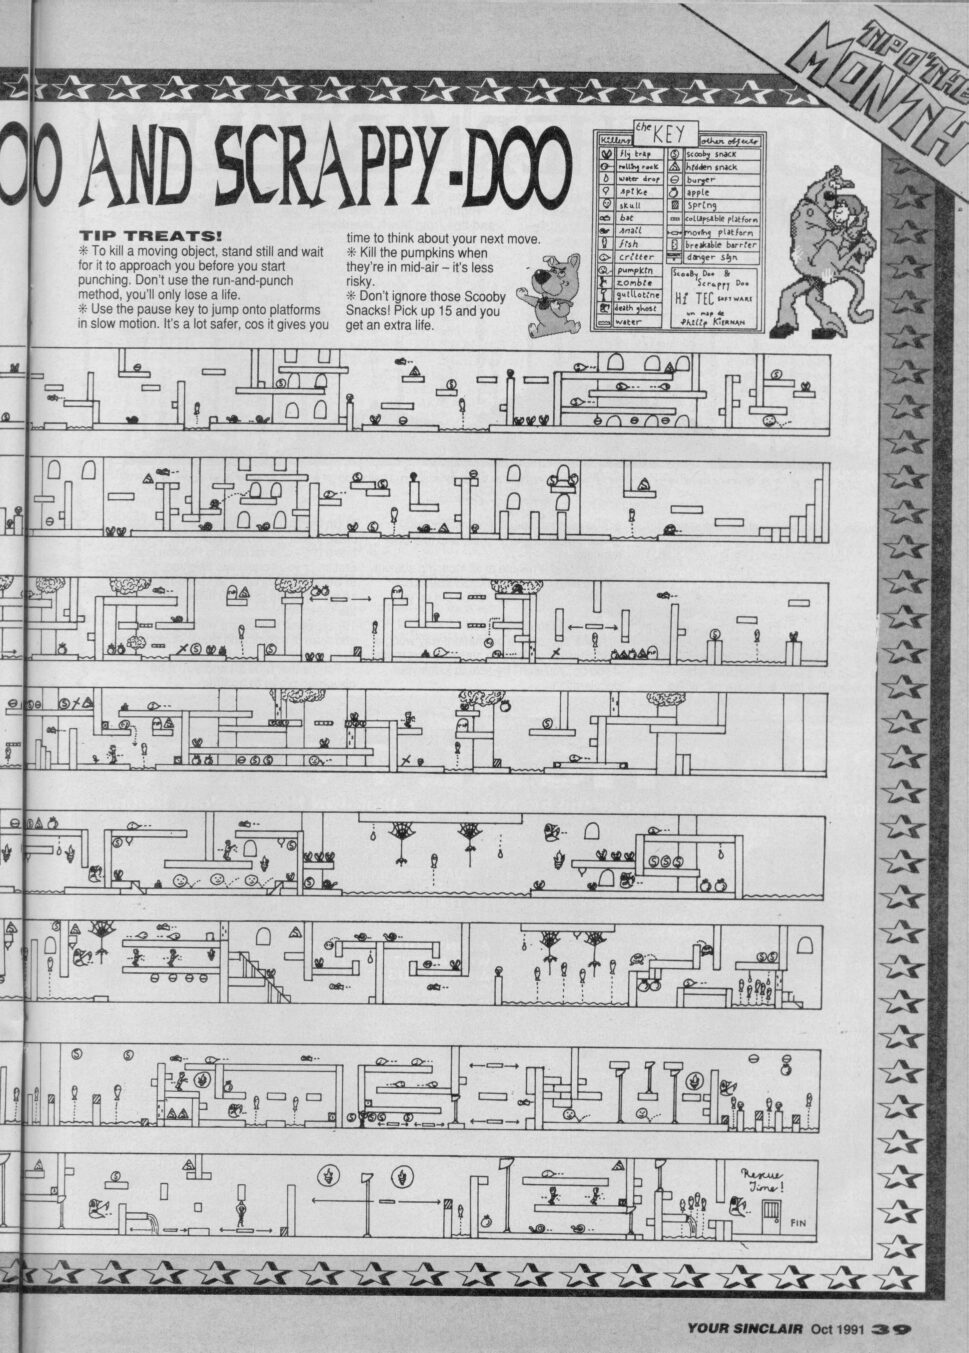 TIP O' THE
MONTH
OO AND SCRAPPY-DOO
TIP TREATS!
✳ To kill a moving object, stand still and wait
for it to approach you before you start
punching. Don't use the run-and-punch
method, you'll only lose a life.
✳ Use the pause key to jump onto platforms
in slow motion. It's a lot safer, cos it gives you
time to think about your next move.
✳ Kill the pumpkins when
they're in mid-air – it's less
risky.
✳ Don't ignore those Scooby
Snacks! Pick up 15 and you
get an extra life.
the KEY
Killers
fly trap
rolling rock
water drop
spike
skull
bat
snail
fish
critter
pumpkin
zombie
guillotine
death ghost
water
other objects
scooby snack
hidden snack
burger
apple
spring
collapsable platform
moving platform
breakable barrier
danger sign
Scooby Doo &
Scrappy Doo
Hi TEC SOFTWARE
un map de
Philip KIERNAN
Rescue
Time!
FIN
YOUR SINCLAIR Oct 1991 39